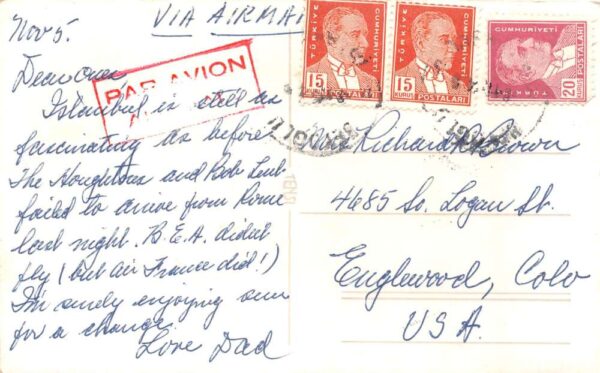 Nov 5.
VIA AIRMAIL
PAR AVION
Dear Ones
Istanbul is still as
fascinating as before
The Houghtons and Bob
failed to arrive from Rome
last night. B.E.A. didn't
fly (but Air France did!)
I'm surely enjoying
for a change.
Love Dad
TÜRKİYE
CUMHURİYETİ
15
KURUŞ
POSTALARI
TÜRKİYE
CUMHURİYETİ
15
KURUŞ
POSTALARI
CUMHURİYETİ
TÜRK
20
POSTALARI
BEYOĞLU
Richard Brown
4685 So. Logan St.
Englewood, Colo
USA.